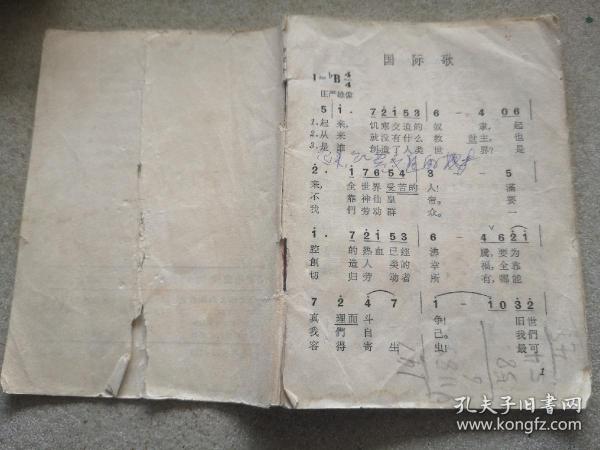 国际歌
1=♭B 4/4
庄严雄偉
5 1· 7 2 1 5 3 6 - 4 0 6
1.起 来, 饥寒交迫的 奴 隶, 起
2.从 来 就没有什么 救 世 主, 也
3.是 誰 創造了人类 世 界? 是
2· 1 7 6 5 4 3 - 5
来, 全世界受苦的 人! 滿
不 靠神仙皇 帝。 要
我 們劳动群 众。 一
1· 7 2 1 5 3 6 - 4 6 2 1
腔 的热血已經 沸 騰, 要为
創 造人类的 幸 福, 全靠
切 归劳动者 所 有, 哪能
7 2 4 7 1 - 1 0 3 2
真理而斗 争! 旧世
我們自 己。 我們
容得寄生 虫! 最可
1
孔夫子旧書网
www.kongfz.com